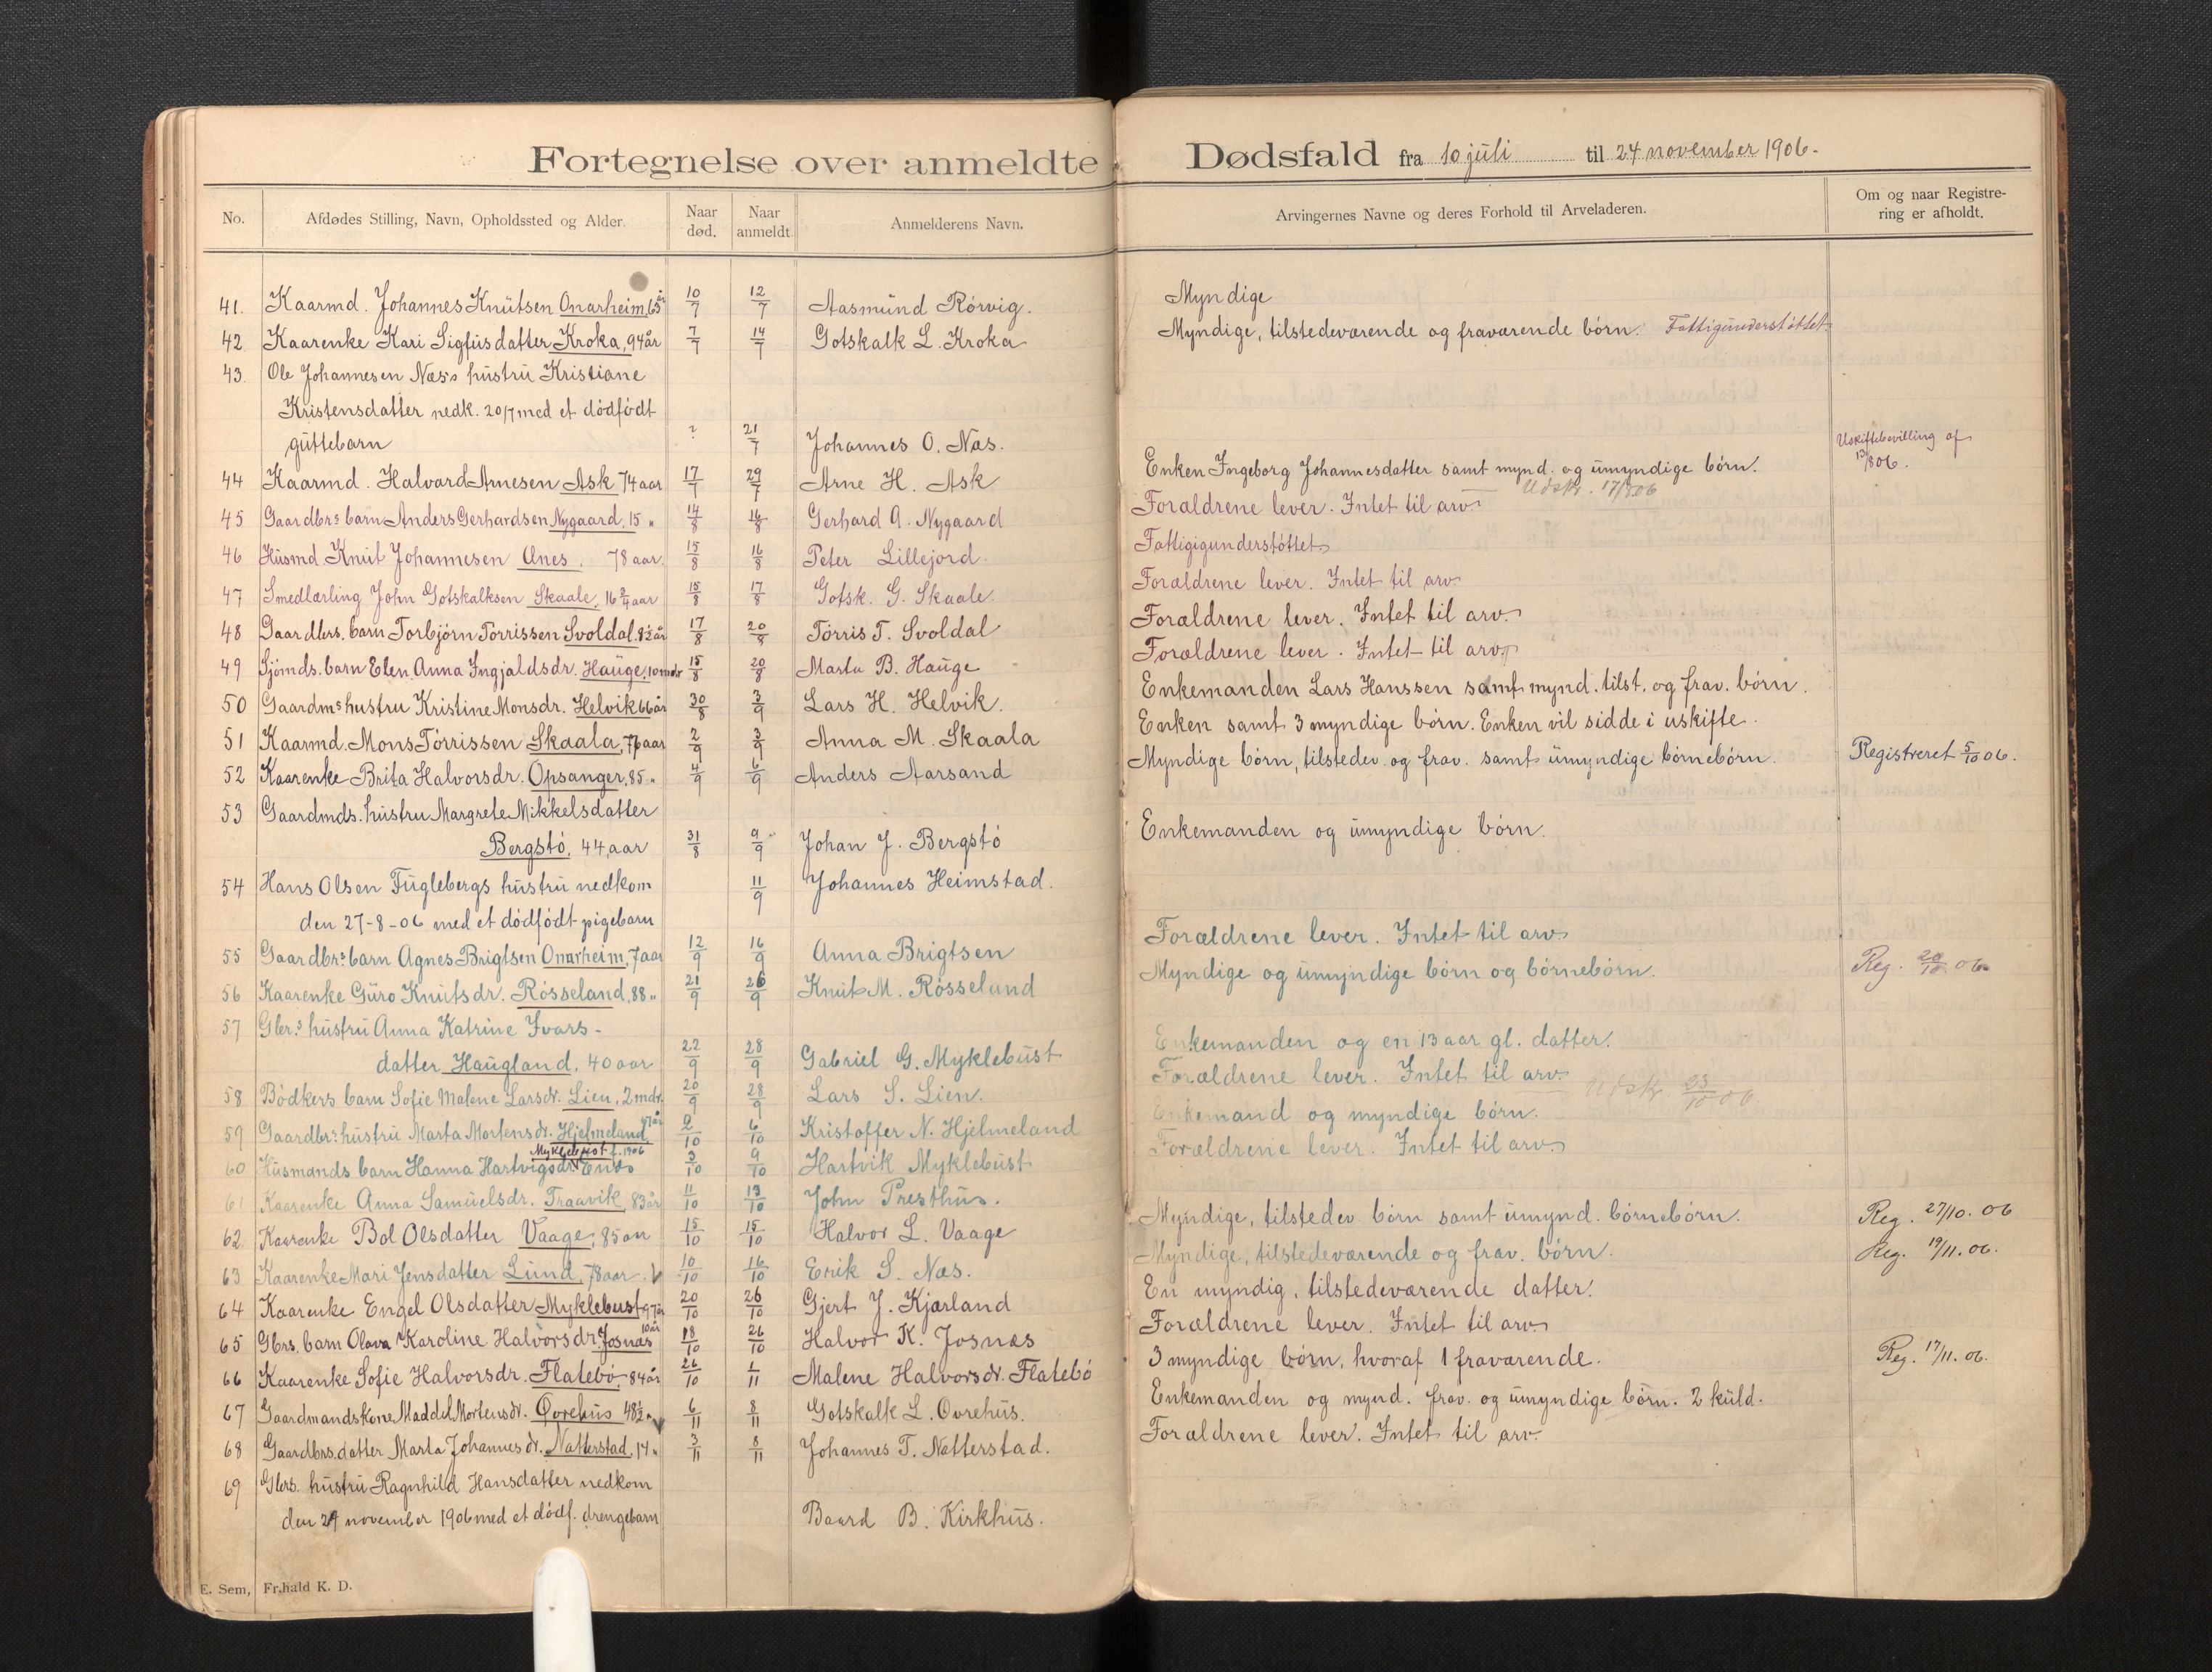 Fortegnelse over anmeldte Dødsfald fra 10 juli til 24 november 1906.
No. Afdødes Stilling, Navn, Opholdssted og Alder. Naar død. Naar anmeldt. Anmelderens Navn. Arvingernes Navne og deres Forhold til Arveladeren. Om og naar Registrering er afholdt.
41. Kaarmd. Johannes Knutsen Onarheim, 65 år 10/7 12/7 Aasmund Rörvig. Myndige
42 Kaarenke Kari Sigfusdatter Kroka, 94 år 7/7 14/7 Gotskalk L. Kroka Myndige, tilstedeværende og fraværende börn. Fattigunderstöttet
43. Ole Johannesen Næss hustru Kristiane
Kristensdatter nedk. 20/7 med et dödfödt
guttebarn ? 21/7 Johannes O. Næs.
44 Kaarmd. Halvard Arnesen Ask 74 aar 17/7 29/7 Arne H. Ask Enken Ingeborg Johannesdatter samt mynd. og umyndige börn. Uskiftebevilling af 13/8 06.
Udskr. 17/8 06
45 Gaardbrs barn Anders Gerhardsen Nygaard, 15 " 14/8 16/8 Gerhard A. Nygaard Forældrene lever. Intet til arv.
46 Husmd. Knut Johannesen Ænes. 78 aar. 15/8 16/8 Peter Lillejord. Fattigigunderstöttet
47 Smedlærling John Gotskalksen Skaale, 16 3/4 aar 15/8 17/8 Gotsk. G. Skaale. Forældrene lever. Intet til arv
48 Gaardbrs. barn Torbjörn Törrissen Svoldal, 8 1/2 år 17/8 20/8 Törris T. Svoldal Forældrene lever. Intet til arv.
49 Sjömds. barn Elen Anna Ingjaldsdr. Hauge, 10 mdr 15/8 20/8 Marta B. Hauge Forældrene lever. Intet til arv.
50 Gaardms hustru Kristine Monsdr. Helvik 66 år 30/8 3/9 Lars H. Helvik. Enkemanden Lars Hanssen samt mynd. tilst. og frav. börn.
51 Kaarmd. Mons Törrissen Skaala, 76 aar 2/9 3/9 Anna M. Skaala Enken samt 3 myndige börn. Enken vil sidde i uskifte.
52 Kaarenke Brita Halvorsdr. Opsanger, 85 " 4/9 6/9 Anders Aarsand Myndige börn, tilstedev. og frav. samt umyndige börnebörn. Registreret 5/10 06.
53 Gaardmds. hustru Margrete Mikkelsdatter
Bergstö, 44 aar 31/8 9/9 Johan J. Bergstö Enkemanden og umyndige börn.
54 Hans Olsen Fuglebergs hustru nedkom 11/9 Johannes Heimstad.
den 27-8-06 med et dödfödt pigebarn
55 Gaardbrs. barn Agnes Brigtsen Onarheim, 7 aar 12/9 16/9 Anna Brigtsen Forældrene lever. Intet til arv
56 Kaarenke Guro Knutsdr. Rösseland, 88 " 21/9 26/9 Knut M. Rösseland Myndige og umyndige börn og börnebörn. Reg. 20/10 06
57 Gbrs hustru Anna Katrine Ivars-
datter Haugland, 40 aar 22/9 28/9 Gabriel G. Myklebust Enkemanden og en 13 aar gl. datter.
58 Bödkers barn Sofie Malene Larsdr. Lien, 2 mdr. 20/9 28/9 Lars S. Lien. Forældrene lever. Intet til arv.
Udskr. 23/10 06.
59 Gaardbrs hustru Marta Mortensdr. Hjelmeland 2/10 6/10 Kristoffer N. Hjelmeland Enkemand og myndige börn.
Myklebust f. 1906
60 Husmands barn Hanna Hartvigsdr. Enes 3/10 9/10 Hartvik Myklebust Forældrene lever. Intet til arv.
61 Kaarenke Anna Samuelsdr. Traavik, 83 år 11/10 13/10 John Presthus.
62 Kaarenke Bol Olsdatter Vaage, 85 aar 15/10 15/10 Halvor L. Vaage Myndige, tilstedev börn samt umynd. börnebörn. Reg. 27/10. 06
63 Kaarenke Mari Jensdatter Lund, 78 aar. 10/10 16/10 Erik S. Næs. Myndige, tilstedeværende og frav. börn. Reg. 19/11. 06.
64 Kaarenke Engel Olsdatter Myklebust 97 år 20/10 26/10 Gjert J. Kjærland En myndig, tilstedeværende datter.
65 Gbrs. barn Olava Karoline Halvorsdr. Josnæs 10 år 18/10 26/10 Halvor K. Josnæs Forældrene lever. Intet til arv.
66 Kaarenke Sofie Halvorsdr. Flatebö, 84 år 26/10 1/11 Malene Halvorsdr. Flatebö 3 myndige börn, hvoraf 1 fraværende. Reg. 17/11. 06.
67 Gaardmandskone Maddel Mortensdr. Ovrehus 48 1/2 " 6/11 8/11 Gotskalk L. Ovrehus. Enkemanden og mynd. frav. og umyndige börn. 2 kuld.
68 Gaardbrs. datter Marta Johannesdr. Natterstad, 14 " 3/11 8/11 Johannes T. Natterstad. Forældrene lever. Intet til arv.
69 Gbrs. hustru Ragnhild Hansdatter nedkom
den 24 november 1906 med et dödf. drengebarn Baard B. Kirkhus.
E. Sem, Fr.hald K. D.